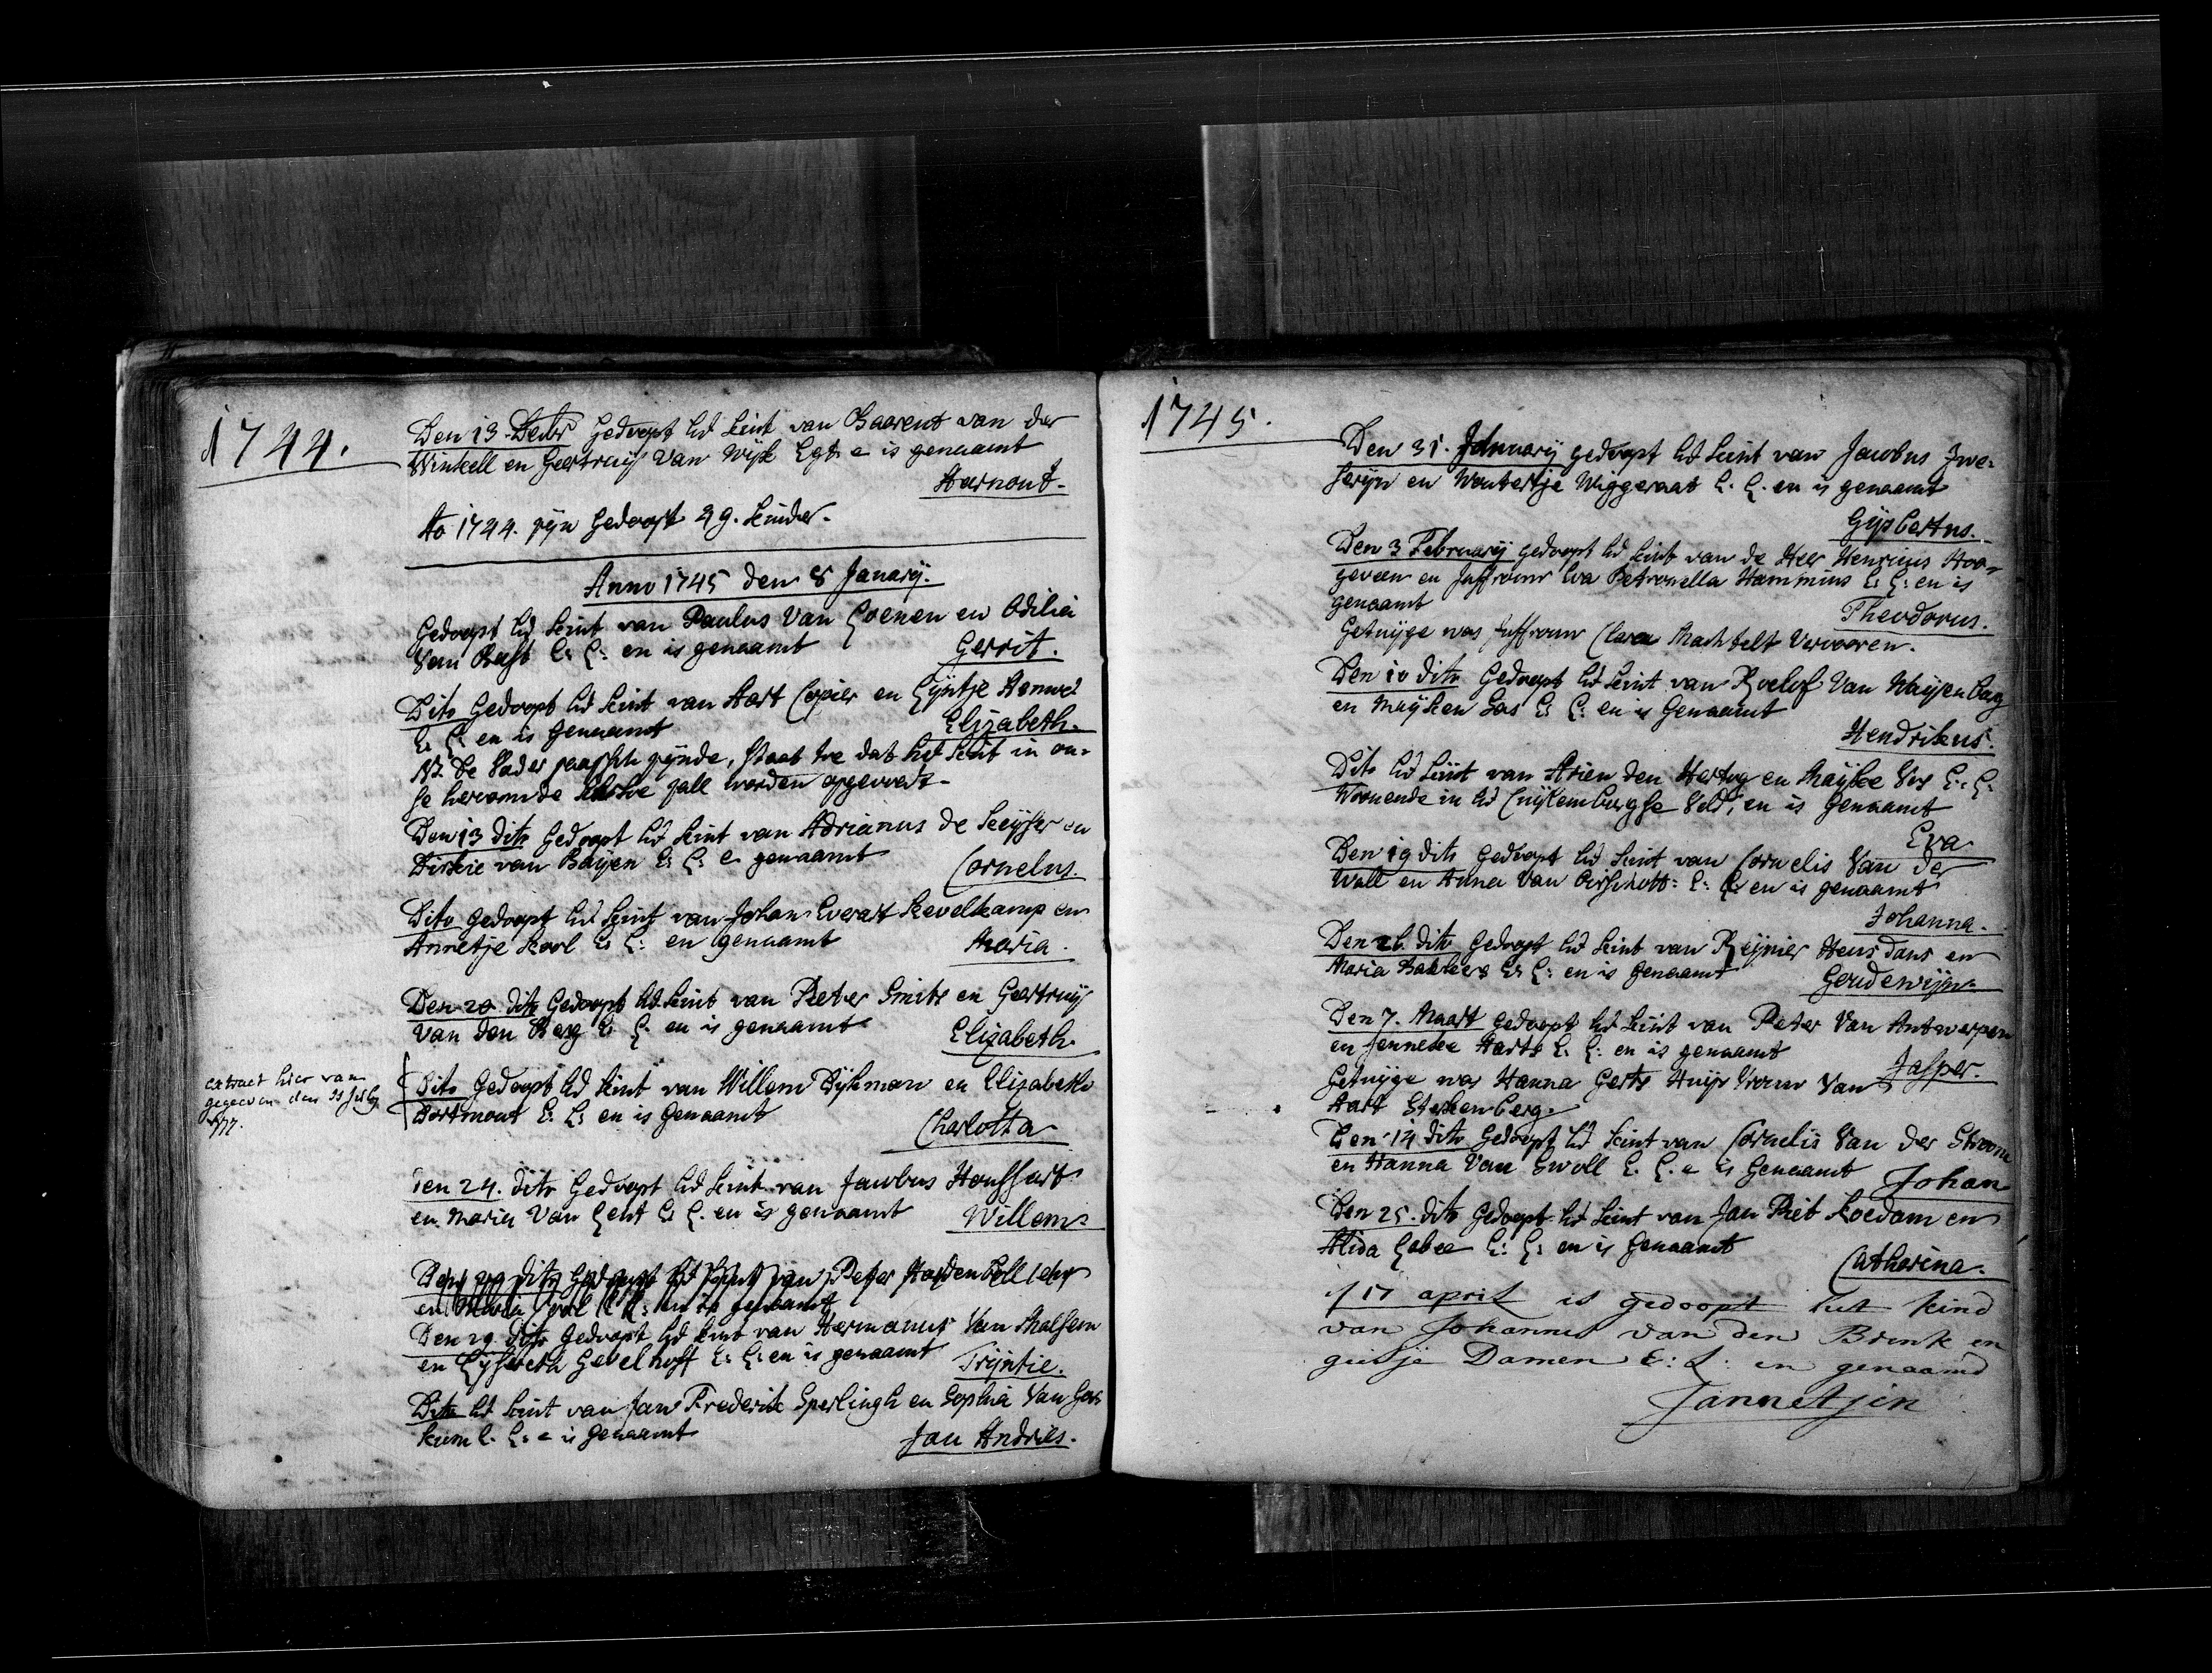 1744.
Den 13 Decbr Gedoopt het kint van Baerent van der
Winkell en Geertruij van Wijk Egt. e is genaamt
Aarnout.
Ao 1744. zijn Gedoopt 49. kinder.
Anno 1745 den 8 Janarij.
Gedoopt het kint van Paulus Van Coenen en Odilia
Van E: L: en is genaamt
Gerrit.
Dito Gedoopt het kint van Aart Copier en Lijntje
E: L: en is Genaamt
Elizabeth.
NB. De Vader paapsch zijnde, staat toe dat het kint in on-
se heroomde kerke zall worden opgevoedt.
Den 13 dito Gedoopt het kint van Adrianus de Keijser en
Dirkie van Baijen E: L: e genaamt
Cornelus.
Dito Gedoopt het kint van Johan Everart Kevelkamp en
Annetje Kool E: L: en genaamt
Maria.
Den 20 dito Gedoopt het kint van Peter Smits en Geertruij
van den Berg E: L: en is genaamt
Elizabeth.
extract hier van
gegeven den
Dito Gedoopt het kint van Willem Dijkman en Elisabeth
Dortmont E: L: en is Genaamt
Charlotta
den 24. dito Gedoopt het kint van Jacobus Houssart
en Maria Van Gent E: L. en is genaamt
Willem.
Den 29 dito Gedoopt het kint van Peter
en Maria E: L: en is genaamt
Den 29 dito Gedoopt het kint van Hermanus Van Malsem
en Lijsebeth Gevelhoff E: L: en is genaamt
Trijntie.
Dito het kint van Jan Frederik Sperlingh en Sophia Van Gor
kum E. L: e is Genaamt
Jan Andries.
1745.
Den 31. Januarij gedoopt het kint van Jacobus Zwe-
serijn en Woutertje Wiggeraat E. L. en is genaamt
Gijsbertus.
Den 3 Februarij gedoopt het kint van de Heer Henricus Hoo-
geveen en Juffrouw Eva Petronella Hamminus E: L: en is
genaamt
Theodorus.
Getuijge was Juffrouw Clara Machtelt Vervooren.
Den 10 dito Gedoopt het kint van Roelof Van Waijenberg
en Maijken Bas E: L: en is Genaamt
Hendrikus.
Dito het kint van Arien den Hertog en Maijke Vos E: L:
Woonende in het Cuijlemburgse Velt, en is Genaamt
Eva
Den 19 dito Gedoopt het kint van Cornelis Van der
Wall en Anna Van Oirschott: E: L: en is genaamt
Johanna.
Den 26. dito Gedoopt het kint van Reijnier Heusdans en
Maria Bakkers E: L: en is Genaamt
Goudewijn.
Den 7. Maart gedoopt het kint van Peter Van Antwerpen
en Jenneke Aarts E. L: en is genaamt
Jasper.
Getuijge was Hanna Gerts Huijs Vrouw Van
Aart Sterkenberg.
Den 14 dito Gedoopt het kint van Cornelis Van der Stroom
en Hanna Van Swoll E. L. e is Genaamt
Johan
Den 25. dito Gedoopt het kint van Jan Piet Koedam en
Alida E: L: en is Genaamt
Catharina.
d 17 april is gedoopt het kind
van Johannes van den Brink en
geertje Damen E: L: en genaamd
Jannetjen